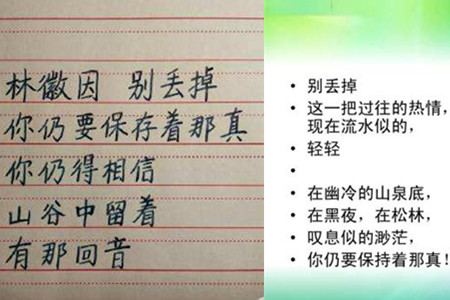 林徽因 别丢掉
你仍要保存着那真
你仍得相信
山谷中留着
有那回音
别丢掉
这一把过往的热情，
现在流水似的，
轻轻
在幽冷的山泉底，
在黑夜，在松林，
叹息似的渺茫，
你仍要保持着那真！